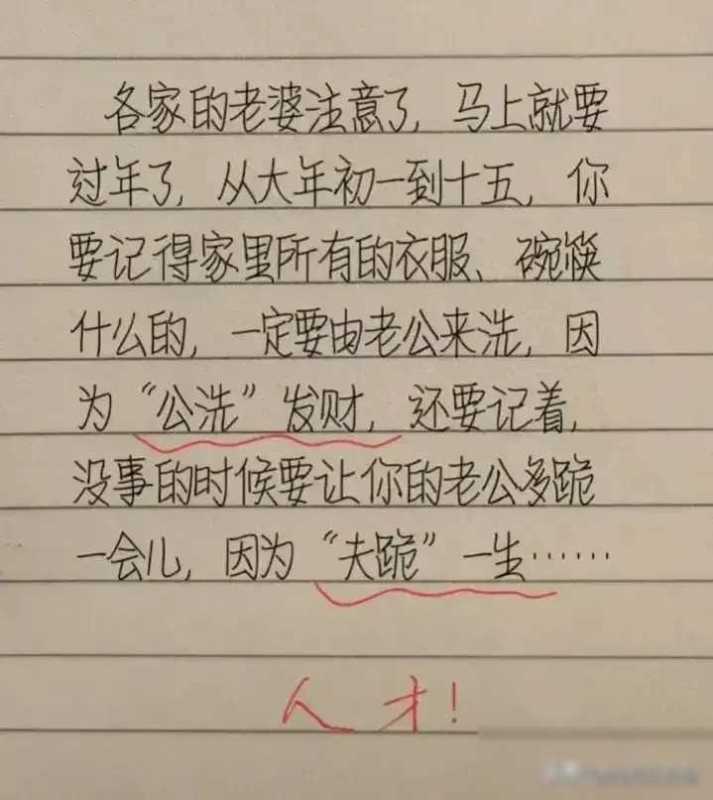 各家的老婆注意了，马上就要
过年了，从大年初一到十五，你
要记得家里所有的衣服、碗筷
什么的，一定要由老公来洗，因
为“公洗”发财，还要记着，
没事的时候要让你的老公多跪
一会儿，因为“夫跪”一生……
人才！